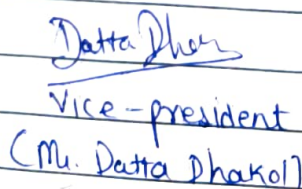 Datta Dhar
Vice-president
(Mr. Datta Dhakol)